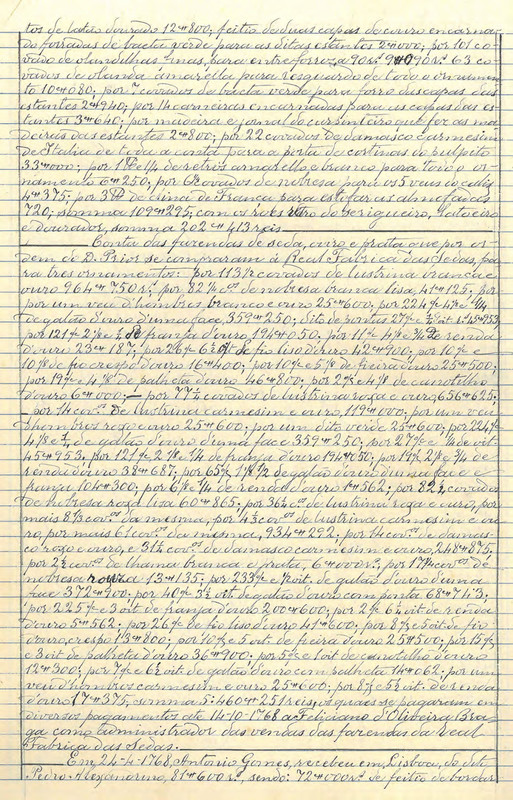 tos de latão dourado 12#800; feitio de duas capas de couro encarna-
do forradas de baeta verde para as ditas estantes 2#000; por 101 co-
vado de olandilhas finas, para entreforro, a 90 rs. 9#090 rs. 63 co-
vados de olanda amarella para resguardo de todo o ornamen-
to 10#080; por 7 covados de baeta verde para forro das capas das
estantes 2#940; por 14 carneiras encarnadas para as capas das es-
tantes 3#640; por madeira e jornal do carpinteiro que fez as ma-
deiras das estantes 2#800; por 22 covados de damasco carmesim
de Italia de toda a conta para a porta de cortinas do pulpito
33#000; por 1 e 1/4 de retros amarello e branco para todo o or-
namento 6#250; por covados de nobresa para os 5 veus de calis
4#375; por de clina de França para estofar as almofadas
720; somma 109#295; com os roes retro do serigueiro, latoeiro
e dourador, somma 202#413 reis
Conta das fazendas de seda, ouro e prata que por or-
dem do D. Prior se compraram á Real Fabrica das Sedas, pa-
ra tres ornamentos: por 113 covados de lustrina branca e
ouro 964#750 rs.: por 82 1/2 cos. de nobresa branca lisa, 41#125, por
por um veu d'hombros branco e ouro 25#600; por 224
de galão d'ouro d'uma face, 359#250; dito de pontas
por 121 de franja d'ouro, 194#050; por 11 de renda
d'ouro 23#187; por 26 de fio liso d'ouro 42#900; por 10 e
de fio crespo d'ouro 16#400; por 10 e 5 de freira d'ouro 25#500;
por 19 e 4 de palheta d'ouro 46#800; por 2 e 4 de canotilho
d'ouro 6#000; — por 77 1/2 covados de lustrina roxa e ouro, 656#625,
— por 14 covos. de lustrina carmesim e ouro, 119#000; por um veu
d'hombros roxo e ouro 25#600; por um dito verde 25#600; por 224
de galão d'ouro d'uma face 359#250; por 27 e de dit.
45#953; por 121 de franja d'ouro 194#050; por 19 de
renda d'ouro 38#687; por 65 de galão d'ouro d'uma face e
franja 104#300; por 6 e 1/4 de renda d'ouro 1#562; por 82 1/2 covados
de nobresa roxa lisa 60#865; por 36 1/2 de lustrina roxa e ouro, por
mais 8 covos. da mesma, por 43 covos. de lustrina carmesim e ou-
ro, por mais 6 covos. da mesma, 934#292; por 14 covos. de damas-
co roxo e ouro, e 31 1/2 covos. de damasco carmesim e ouro, 248#875;
por 2 1/2 covos. de lhama branca e prata, 6#000 rs.; por 17 covos. de
nobresa roxa 13#135; por 233 e oit. de galão d'ouro d'uma
face 372#900; por 40 oit. de galão d'ouro com ponta 68#713;
por 225 e 3 oit. de franja d'ouro 200#600; por 2 6 1/2 oit. de renda
d'ouro 5#562; por 26 de fio liso d'ouro 41#600; por 8 e 5 oit. de fio
d'ouro, crespo 13#800; por 10 e 5 oit. de freira d'ouro 25#500; por 15
e 3 oit. de palheta d'ouro 36#900; por 5 e 1 oit. de canotilho d'ouro
12#300; por 7 e 6 1/2 oit. de galão d'ouro com palheta 14#062; por um
veu d'hombros carmesim e ouro 25#600; por 8 e 5 1/2 oit. de renda
d'ouro 17#375; somma 5:460#251 reis, os quaes se pagaram em
diversos pagamentos até 14-10-1768 a Feliciano d'Oliveira Bra-
ga como administrador das vendas das fazendas da Real
Fabrica das Sedas.
Em 22-4-1768, Antonio Gomes, recebeu em Lisboa, do dito
Pedro Alexandrino, 81#600 rs., sendo: 72#000 rs. de feitio de bordar